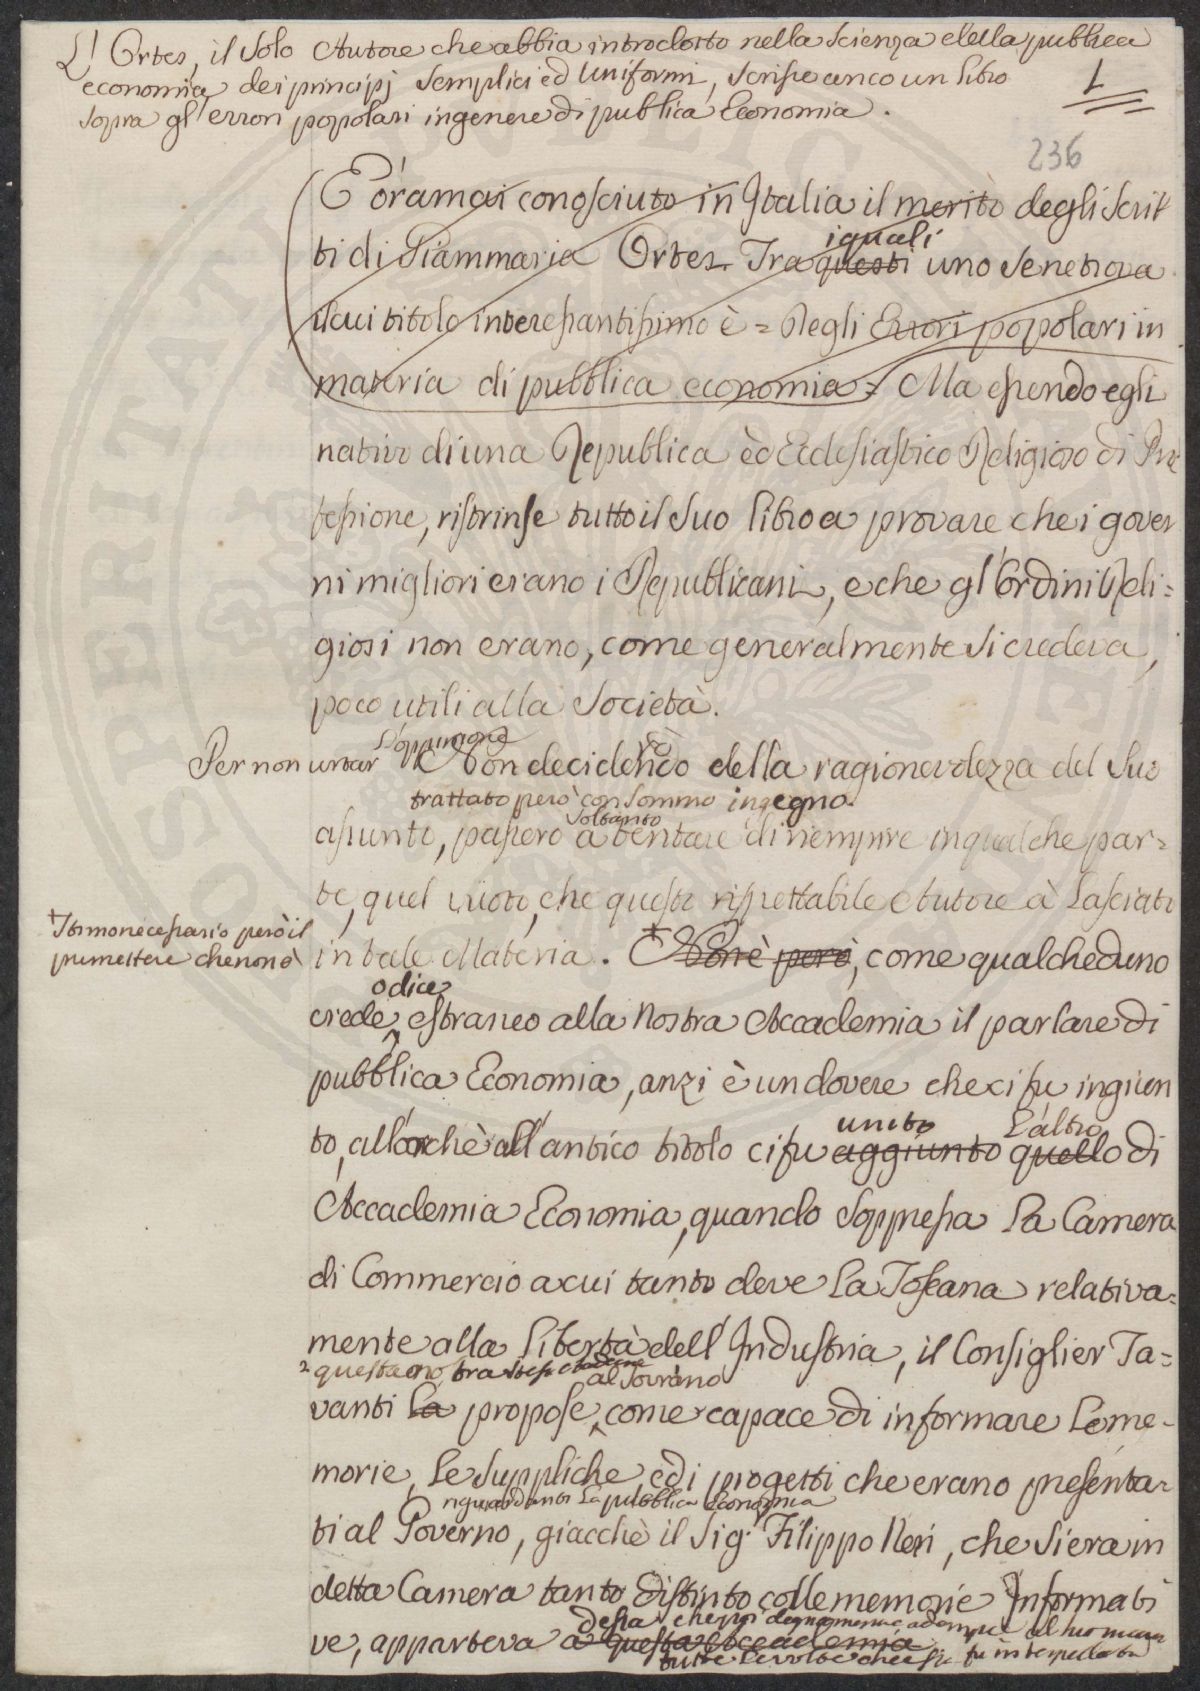 L'Ortes, il Solo Autore che abbia introdotto nella Scienza della pubblica
economia dei principj Semplici ed Uniformi, Scrisse anco un libro
sopra gl'errori popolari in genere di pubblica Economia.
1
236
E' oramai conosciuto in Italia il merito degli Scrit
ti di Giammaria Ortes. Tra questi uno Se ne trova
i quali
il cui titolo interessantissimo è = Degli Errori popolari in
materia di pubblica economia = Ma essendo egli
nativo di una Republica ed Ecclesiastico Religioso di Pro
fessione, ristrinse tutto il Suo libro a provare che i gover
ni migliori erano i Republicani, e che gl'Ordini Reli=
giosi non erano, come generalmente Si credeva,
poco utili alla Società.
Per non urtar l'oppinione
Non decidendo della ragionevolezza del Suo
trattato però con Sommo ingegno.
assunto, passerò a tentare di riempire in qualche par=
Soltanto
te, quel vuoto, che questo rispettabile Autore à Lasciato
in tale Materia. Non è però, come qualcheduno
+ Stimo necessario però il
premettere che non è
crede, estraneo alla Nostra Accademia il parlare di
o dice
pubblica Economia, anzi è un dovere che ci fu ingiun
to, allorchè all'antico titolo ci fu aggiunto quello di
unito L'altro
Accademia Economia, quando Soppressa La Camera
di Commercio a cui tanto deve La Toscana relativa=
mente alla Libertà dell'Industria, il Consiglier Ta=
= questa nostra Stessa
al Sovrano
vanti La propose, come capace di informare Le me-
morie, Le Suppliche ed i progetti che erano presenta-
riguardanti La pubblica Economia
ti al Governo, giacchè il Sig.r Filippo Neri, che Si era in
detta Camera tanto distinto colle memorie Informati
ve, apparteva a questa Accademia
che poi degnamente
tutte Le volte che